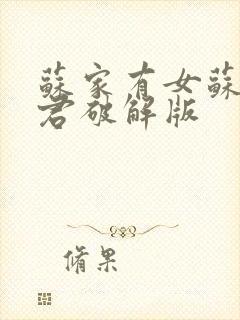 蘇家有女蘇
君破解版
脩果